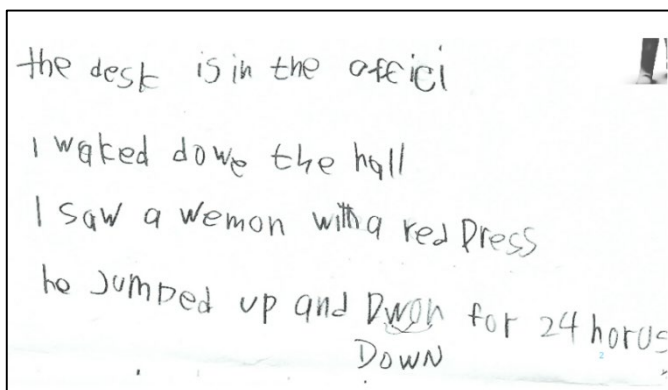 the desk is in the officí
I waked dowe the hall
I saw a wemon with a red Dress
he Jumped up and Dwon for 24 horus
DOWN
2